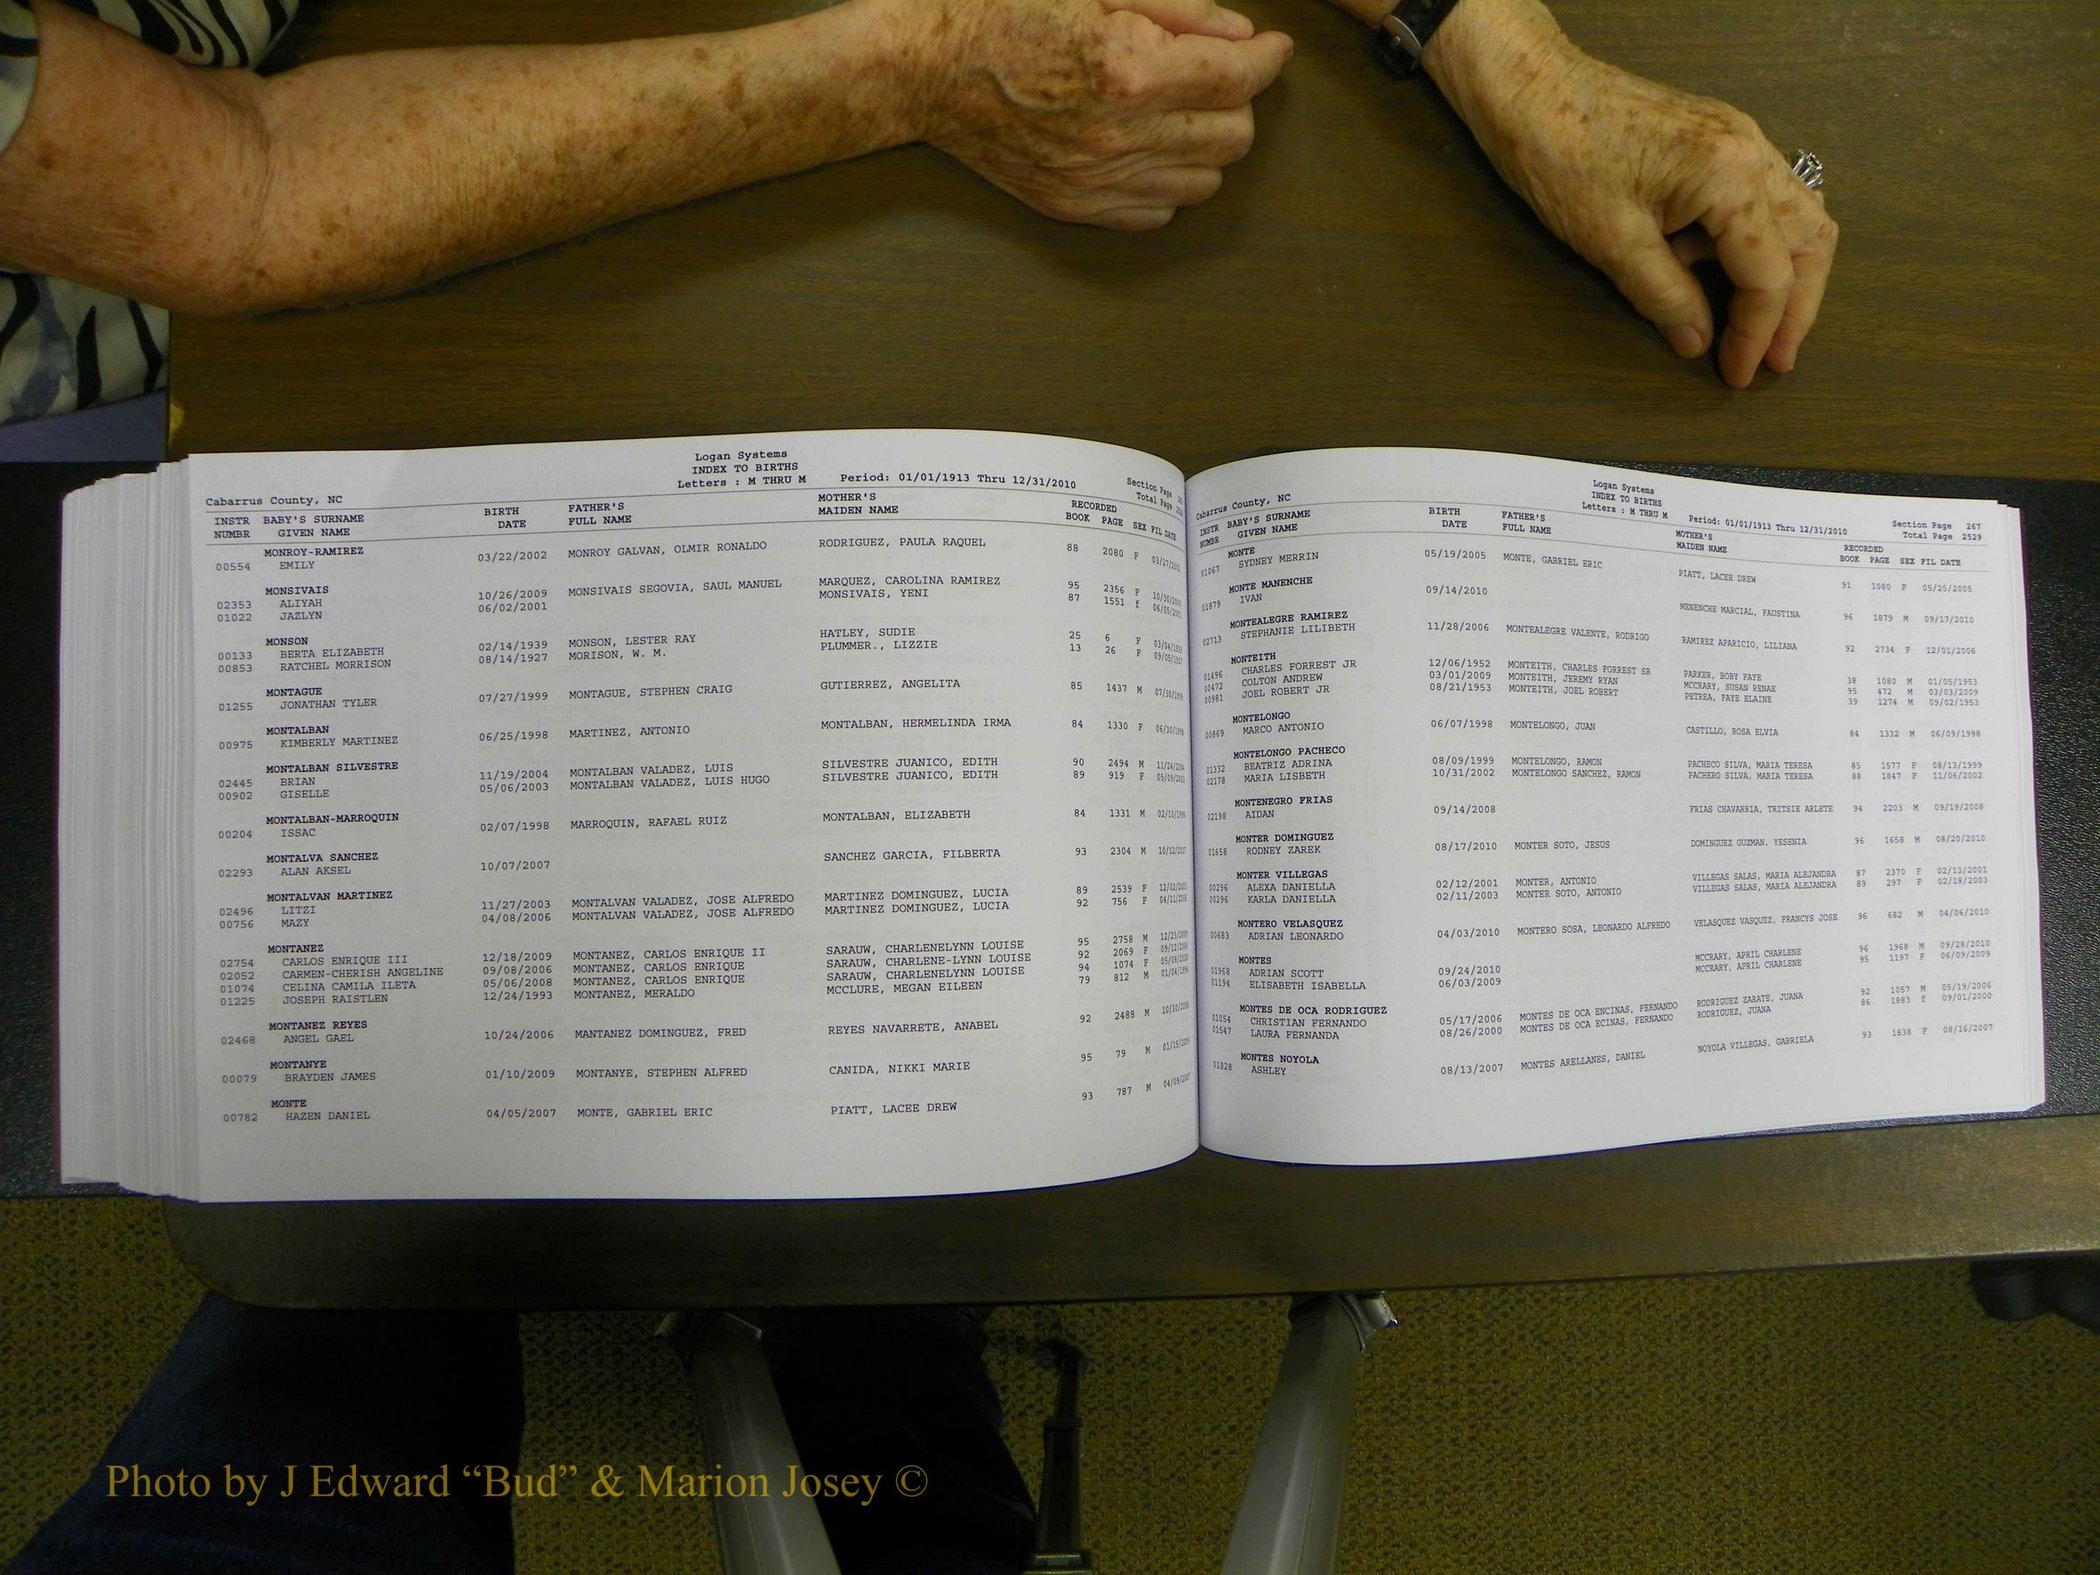 Logan Systems
INDEX TO BIRTHS
Letters : M THRU M Period: 01/01/1913 Thru 12/31/2010 Section Page
Cabarrus County, NC Total Page
INSTR BABY'S SURNAME BIRTH FATHER'S MOTHER'S RECORDED
NUMBR GIVEN NAME DATE FULL NAME MAIDEN NAME BOOK PAGE SEX FIL DATE
MONROY-RAMIREZ
00554 EMILY 03/22/2002 MONROY GALVAN, OLMIR RONALDO RODRIGUEZ, PAULA RAQUEL 88 2080 F 03/27/2002
MONSIVAIS
02353 ALIYAH 10/26/2009 MONSIVAIS SEGOVIA, SAUL MANUEL MARQUEZ, CAROLINA RAMIREZ 95 2356 F 10/30/2009
01022 JAZLYN 06/02/2001 MONSIVAIS, YENI 87 1551 f 06/05/2001
MONSON
00133 BERTA ELIZABETH 02/14/1939 MONSON, LESTER RAY HATLEY, SUDIE 25 6 F 03/04/1939
00853 RATCHEL MORRISON 08/14/1927 MORISON, W. M. PLUMMER., LIZZIE 13 26 F 09/05/1927
MONTAGUE
01255 JONATHAN TYLER 07/27/1999 MONTAGUE, STEPHEN CRAIG GUTIERREZ, ANGELITA 85 1437 M 07/30/1999
MONTALBAN
00975 KIMBERLY MARTINEZ 06/25/1998 MARTINEZ, ANTONIO MONTALBAN, HERMELINDA IRMA 84 1330 F 06/30/1998
MONTALBAN SILVESTRE
02445 BRIAN 11/19/2004 MONTALBAN VALADEZ, LUIS SILVESTRE JUANICO, EDITH 90 2494 M 11/24/2004
00902 GISELLE 05/06/2003 MONTALBAN VALADEZ, LUIS HUGO SILVESTRE JUANICO, EDITH 89 919 F 05/09/2003
MONTALBAN-MARROQUIN
00204 ISSAC 02/07/1998 MARROQUIN, RAFAEL RUIZ MONTALBAN, ELIZABETH 84 1331 M 02/10/1998
MONTALVA SANCHEZ
02293 ALAN AKSEL 10/07/2007 SANCHEZ GARCIA, FILBERTA 93 2304 M 10/12/2007
MONTALVAN MARTINEZ
02496 LITZI 11/27/2003 MONTALVAN VALADEZ, JOSE ALFREDO MARTINEZ DOMINGUEZ, LUCIA 89 2539 F 12/02/2003
00756 MAZY 04/08/2006 MONTALVAN VALADEZ, JOSE ALFREDO MARTINEZ DOMINGUEZ, LUCIA 92 756 F 04/11/2006
MONTANEZ
02754 CARLOS ENRIQUE III 12/18/2009 MONTANEZ, CARLOS ENRIQUE II SARAUW, CHARLENELYNN LOUISE 95 2758 M 12/23/2009
02052 CARMEN-CHERISH ANGELINE 09/08/2006 MONTANEZ, CARLOS ENRIQUE SARAUW, CHARLENE-LYNN LOUISE 92 2069 F 09/12/2006
01074 CELINA CAMILA ILETA 05/06/2008 MONTANEZ, CARLOS ENRIQUE SARAUW, CHARLENELYNN LOUISE 94 1074 F 05/08/2008
01225 JOSEPH RAISTLEN 12/24/1993 MONTANEZ, MERALDO MCCLURE, MEGAN EILEEN 79 812 M 01/04/1994
MONTANEZ REYES
02468 ANGEL GAEL 10/24/2006 MANTANEZ DOMINGUEZ, FRED REYES NAVARRETE, ANABEL 92 2488 M 10/30/2006
MONTANYE
00079 BRAYDEN JAMES 01/10/2009 MONTANYE, STEPHEN ALFRED CANIDA, NIKKI MARIE 95 79 M 01/15/2009
MONTE
00782 HAZEN DANIEL 04/05/2007 MONTE, GABRIEL ERIC PIATT, LACEE DREW 93 787 M 04/09/2007
Logan Systems
INDEX TO BIRTHS
Letters : M THRU M Period: 01/01/1913 Thru 12/31/2010 Section Page 267
Cabarrus County, NC Total Page 2529
INSTR BABY'S SURNAME BIRTH FATHER'S MOTHER'S RECORDED
NUMBR GIVEN NAME DATE FULL NAME MAIDEN NAME BOOK PAGE SEX FIL DATE
MONTE
01067 SYDNEY MERRIN 05/19/2005 MONTE, GABRIEL ERIC PIATT, LACEE DREW 91 1080 F 05/25/2005
MONTE MANENCHE
01879 IVAN 09/14/2010 MENENCHE MARCIAL, FAUSTINA 96 1879 M 09/17/2010
MONTEALEGRE RAMIREZ
02713 STEPHANIE LILIBETH 11/28/2006 MONTEALEGRE VALENTE, RODRIGO RAMIREZ APARICIO, LILIANA 92 2734 F 12/01/2006
MONTEITH
01496 CHARLES FORREST JR 12/06/1952 MONTEITH, CHARLES FORREST SR PARKER, BOBY FAYE 38 1080 M 01/05/1953
00472 COLTON ANDREW 03/01/2009 MONTEITH, JEREMY RYAN MCCRARY, SUSAN RENAE 95 472 M 03/03/2009
00981 JOEL ROBERT JR 08/21/1953 MONTEITH, JOEL ROBERT PETREA, FAYE ELAINE 39 1274 M 09/02/1953
MONTELONGO
00869 MARCO ANTONIO 06/07/1998 MONTELONGO, JUAN CASTILLO, ROSA ELVIA 84 1332 M 06/09/1998
MONTELONGO PACHECO
01332 BEATRIZ ADRINA 08/09/1999 MONTELONGO, RAMON PACHECO SILVA, MARIA TERESA 85 1577 F 08/13/1999
02178 MARIA LISBETH 10/31/2002 MONTELONGO SANCHEZ, RAMON PACHERO SILVA, MARIA TERESA 88 1847 F 11/06/2002
MONTENEGRO FRIAS
02198 AIDAN 09/14/2008 FRIAS CHAVARRIA, TRITSIE ARLETE 94 2203 M 09/19/2008
MONTER DOMINGUEZ
01658 RODNEY ZAREK 08/17/2010 MONTER SOTO, JESUS DOMINGUEZ GUZMAN, YESENIA 96 1658 M 08/20/2010
MONTER VILLEGAS
00296 ALEXA DANIELLA 02/12/2001 MONTER, ANTONIO VILLEGAS SALAS, MARIA ALEJANDRA 87 2370 F 02/13/2001
00296 KARLA DANIELLA 02/11/2003 MONTER SOTO, ANTONIO VILLEGAS SALAS, MARIA ALEJANDRA 89 297 F 02/18/2003
MONTERO VELASQUEZ
00683 ADRIAN LEONARDO 04/03/2010 MONTERO SOSA, LEONARDO ALFREDO VELASQUEZ VASQUEZ, FRANCYS JOSE 96 682 M 04/06/2010
MONTES
01968 ADRIAN SCOTT 09/24/2010 MCCRARY, APRIL CHARLENE 96 1968 M 09/28/2010
01194 ELISABETH ISABELLA 06/03/2009 MCCRARY, APRIL CHARLENE 95 1197 F 06/09/2009
MONTES DE OCA RODRIGUEZ
01054 CHRISTIAN FERNANDO 05/17/2006 MONTES DE OCA ENCINAS, FERNANDO RODRIGUEZ ZARATE, JUANA 92 1057 M 05/19/2006
01547 LAURA FERNANDA 08/26/2000 MONTES DE OCA ECINAS, FERNANDO RODRIGUEZ, JUANA 86 1883 f 09/01/2000
MONTES NOYOLA
01828 ASHLEY 08/13/2007 MONTES ARELLANES, DANIEL NOYOLA VILLEGAS, GABRIELA 93 1838 F 08/16/2007
Photo by J Edward “Bud” & Marion Josey ©